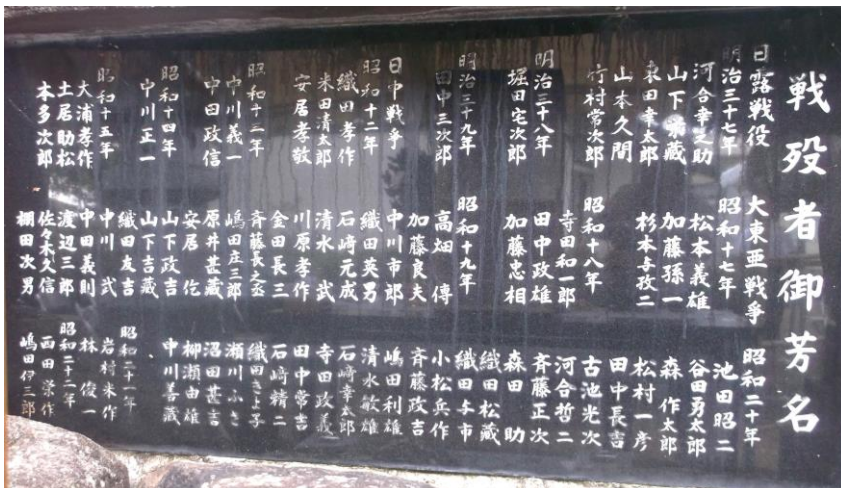 戦歿者御芳名
日露戦役
明治三十七年
河合幸之助
山下栄蔵
東田幸太郎
山本久間
竹村常次郎
明治三十八年
堀田宅次郎
明治三十九年
田中三次郎
日中戦争
昭和十二年
織田孝作
米田清太郎
安居孝敬
昭和十三年
中川義一
中田政信
昭和十四年
中川正一
昭和十五年
大浦孝作
土居助松
本多次郎
大東亜戦争
昭和十七年
松本義雄
加藤孫一
杉本与孜二
昭和十八年
寺田和一郎
田中政雄
加藤忠相
昭和十九年
高畑 傳
加藤良夫
中川市郎
織田英男
石﨑元成
清水 武
川原孝作
金田長三
斉藤長之丞
嶋田庄三郎
原井甚藏
安居
山下政吉
山下吉藏
織田友吉
中川 武
中田義則
渡辺三郎
佐々木久信
棚田次男
昭和二十年
池田昭二
谷田勇太郎
森 作太郎
松村一彦
田中長吉
古池光次
河合哲二
斉藤正次
森田 助
織田松藏
織田与市
小松兵作
斉藤政吉
嶋田利雄
清水敏雄
石﨑幸太郎
寺田政義
田中常吉
石﨑精二
織田きよ子
瀬川ふさ
沼田甚吉
柳瀬由雄
中川善藏
昭和二十一年
岩村米作
林 俊一
昭和二十二年
西田栄作
嶋田伊三郎